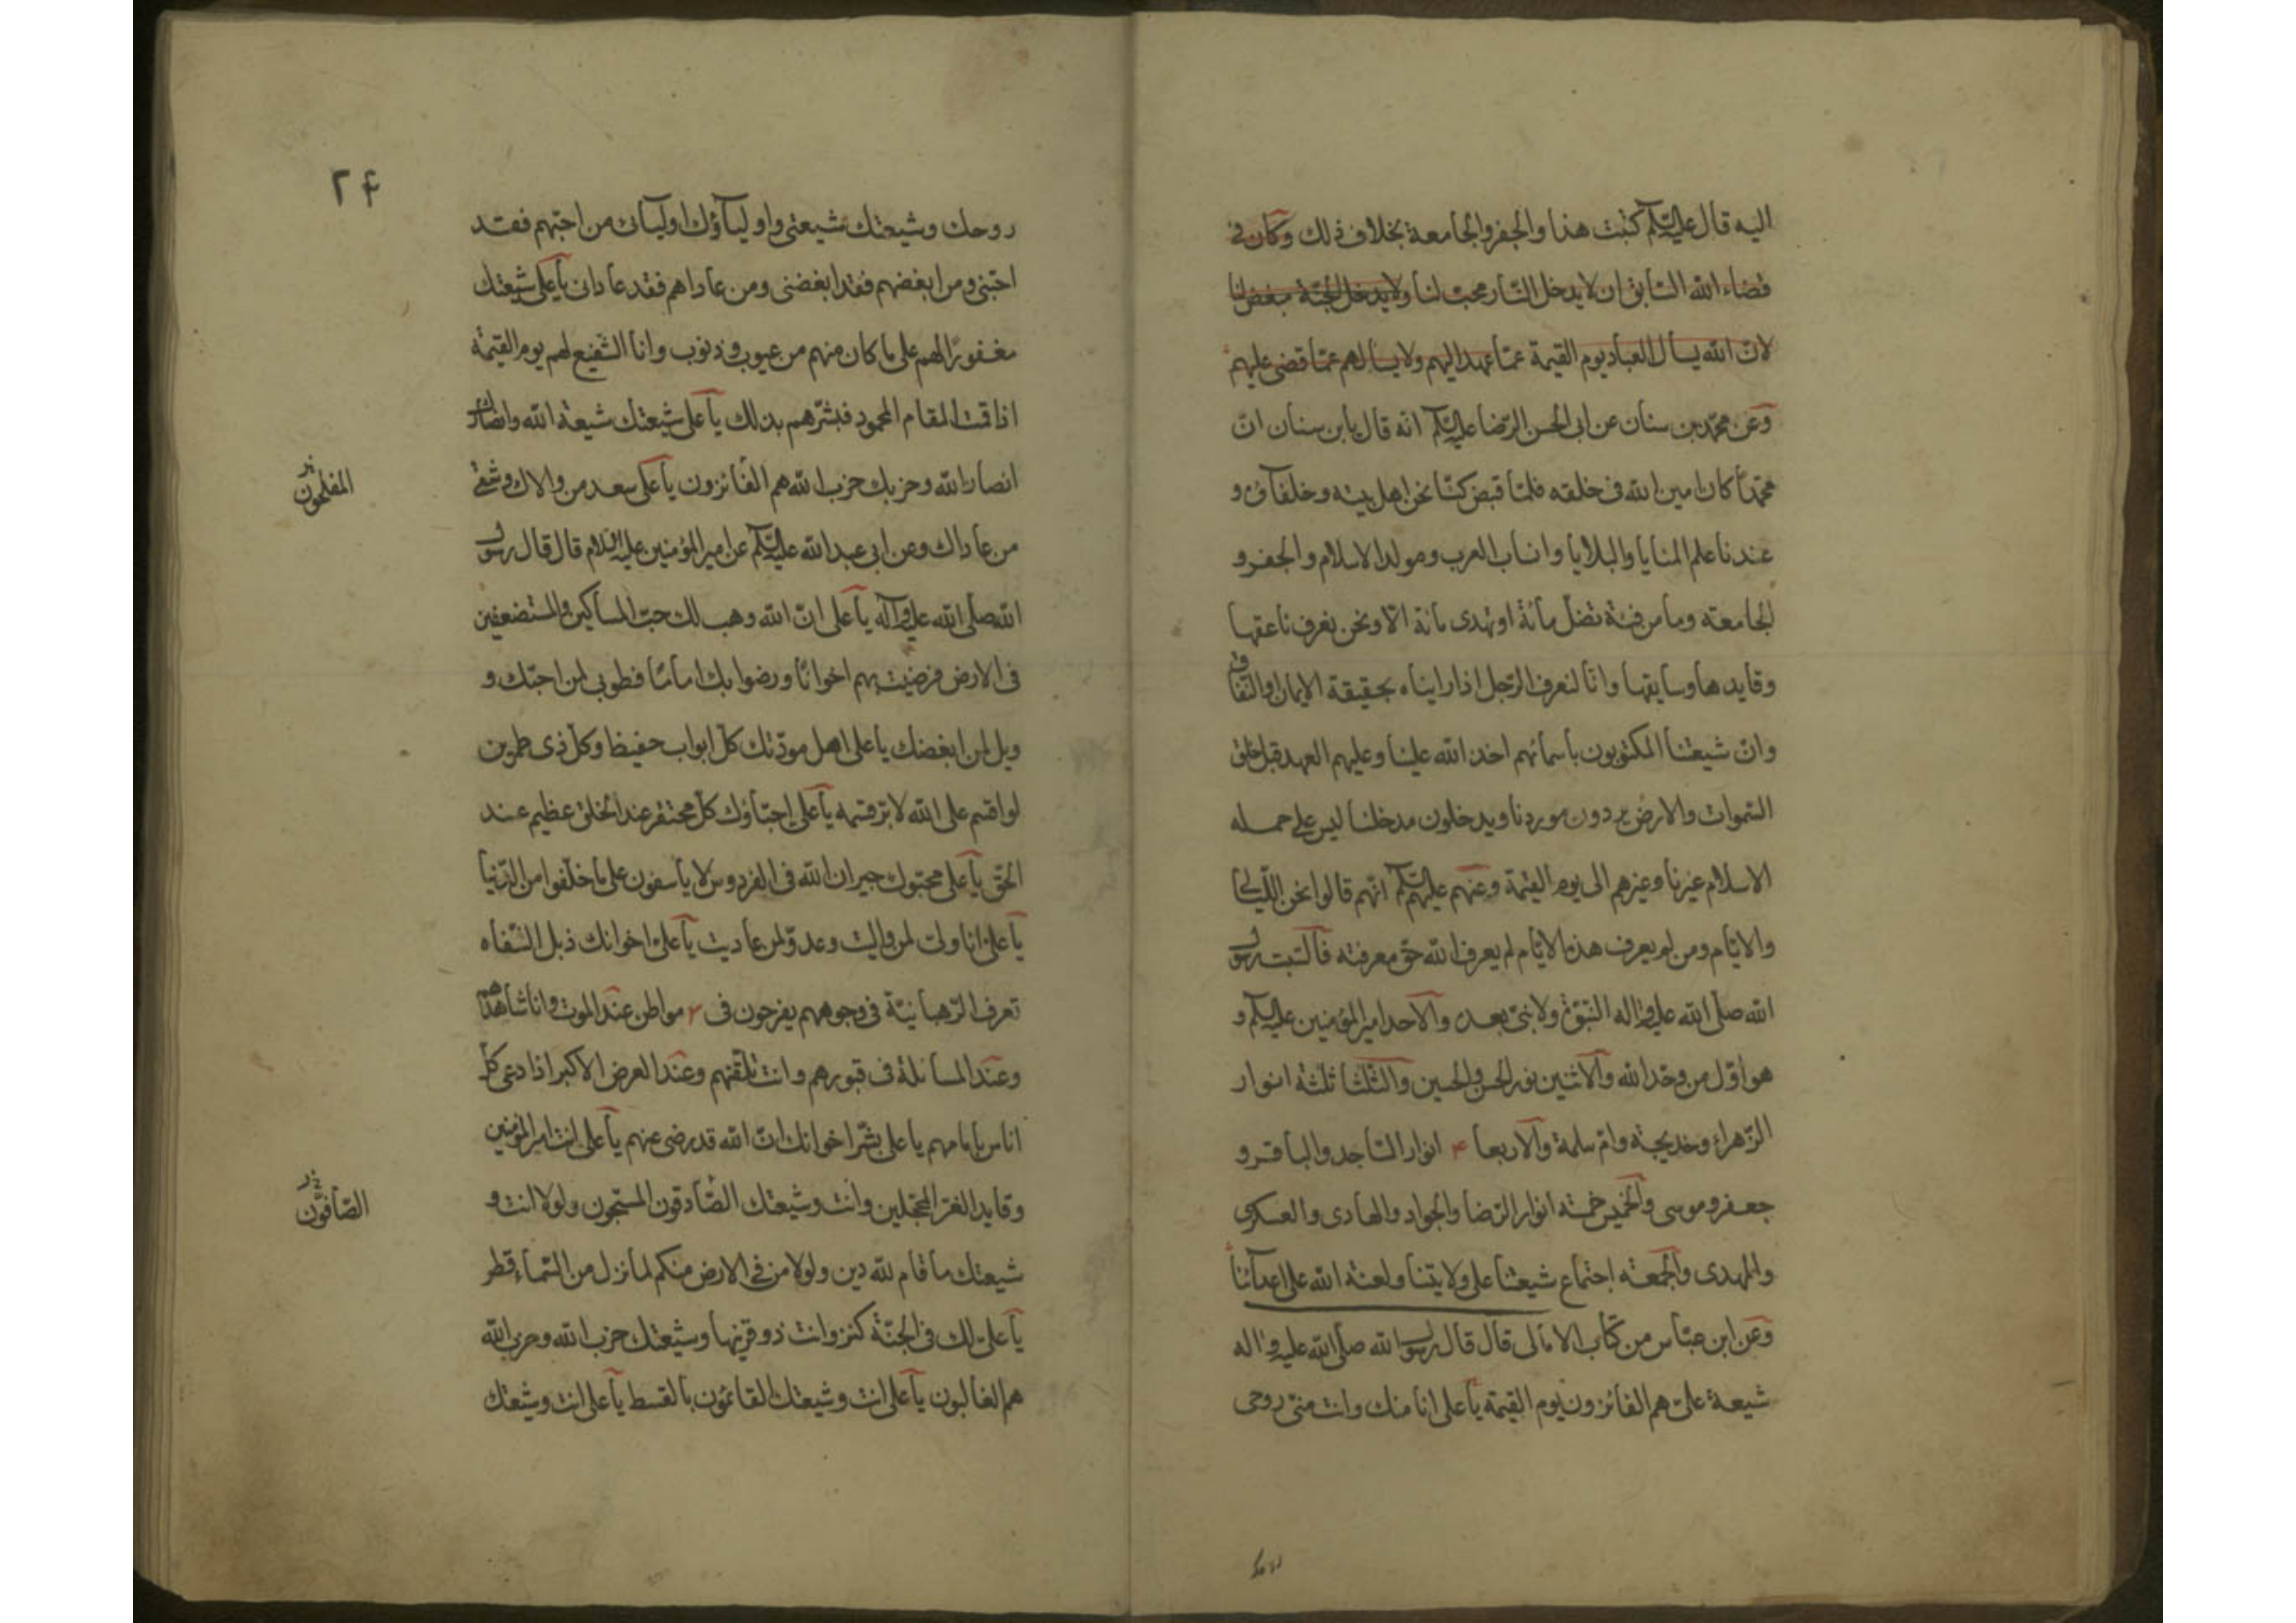 اليه قال عليه السلم كتبت هذا والجفر والجامعة بخلاف ذلك وكان في
قضاء الله السابق ان لا يدخل النار محبّ لنا ولا يدخل الجنّة مبغض لنا
لانّ الله يسأل العباد يوم القيمة عمّا عهد اليهم ولا يسألهم عمّا قضى عليهم
وعن محمّد بن سنان عن ابى الحسن الرّضا عليه السلم انه قال يا بن سنان انّ
محمّداً كان امين الله فى خلقه فلمّا قبض كنّا نحن اهل بيته وخلفاؤه و
عندنا علم المنايا والبلايا وانساب العرب ومولد الاسلام والجفر و
الجامعة وما من فئة تضلّ مائة او تهدى مائة الّا ونحن نعرف ناعقها
وقايدها وسايقها وانّا لنعرف الرّجل اذا رايناه بحقيقة الايمان او النّفاق
وانّ شيعتنا المكتوبون باسمائهم اخذ الله علينا وعليهم العهد قبل خلق
السّموات والارض يردون موردنا ويدخلون مدخلنا ليس على حمله
الاسلام غيرنا وغيرهم الى يوم القيمة وعنهم عليهم السلم انّهم قالوا نحن اللّيالى
والايّام ومن لم يعرف هذه الايّام لم يعرف الله حقّ معرفته فالسّبت رسول
الله صلّى الله عليه واله النّبوّة ولا نبىّ بعده والاحد امير المؤمنين عليه السلم و
هو اوّل من وحّد الله والاثنين نور الحسن والحسين والثّلثا ثلثة انوار
الزّهراء وخديجة وامّ سلمة والاربعا ۴ انوار السّاجد والباقر و
جعفر وموسى والخميس خمسة انوار الرّضا والجواد والهادى والعسكرى
والمهدى والجمعة اجتماع شيعتنا على ولايتنا ولعنة الله على اعدائنا
وعن ابن عبّاس من كتاب الامالى قال قال رسول الله صلّى الله عليه واله
شيعة علىّ هم الفائزون يوم القيمة يا على انا منك وانت منّى روحى
۲۴
روحك وشيعتك شيعتى واولياؤك اوليائى من احبّهم فقد
احبّنى ومن ابغضهم فقد ابغضنى ومن عاداهم فقد عادانى يا على شيعتك
مغفورًا لهم على ما كان منهم من عيوب وذنوب وانا الشّفيع لهم يوم القيمة
اذا قمت المقام المحمود فبشّرهم بذلك يا على شيعتك شيعة الله وانصارك
انصار الله وحزبك حزب الله هم الفائزون يا على سعد من والاك وشقى
المفلحون
من عاداك وعن ابى عبد الله عليه السلم عن امير المؤمنين عليه السلام قال قال رسول
الله صلّى الله عليه وآله يا على انّ الله وهب لك حبّ المساكين والمستضعفين
فى الارض فرضيت بهم اخوانًا ورضوا بك امامًا فطوبى لمن احبّك و
ويل لمن ابغضك يا على اهل مودّتك كلّ ابواب حفيظ وكلّ ذى طمرين
لو اقسم على الله لابرّ قسمه يا على احبّاؤك كلّ محتقر عند الخلق عظيم عند
الحقّ يا على محبّوك جيران الله فى الفردوس لا يأسفون على ما خلّفوا من الدّنيا
يا علىّ انا ولىّ لمن واليت وعدوّ لمن عاديت يا علىّ اخوانك ذبل الشّفاه
تعرف الرّهبانيّة فى وجوههم يفرحون فى ۳ مواطن عند الموت وانا شاهدهم
وعند المسائلة فى قبورهم وانت تلقّنهم وعند العرض الاكبر اذا دعى كلّ
اناس بامامهم يا على بشّر اخوانك انّ الله قد رضى عنهم يا على انت امير المؤمنين
وقايد الغرّ المحجّلين وانت وشيعتك الصّادقون المسبّحون ولولا انت و
الصّافّون
شيعتك ما قام لله دين ولولا من فى الارض منكم لما نزل من السّماء قطر
يا علىّ لك فى الجنّة كنز وانت ذو قرنيها وشيعتك حزب الله وحزب الله
هم الغالبون يا على انت وشيعتك القائمون بالقسط يا على انت وشيعتك